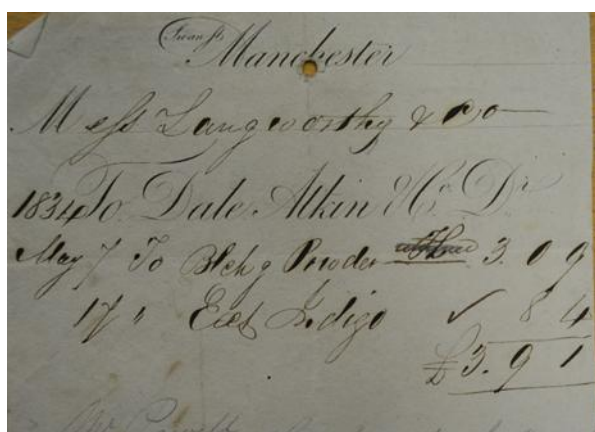 Swan St
Manchester
Mess Langworthy & Co
1834 To Dale Atkin & Co Dr
May 7 To Blchg Powder 3. 0 9
17 " Ext Indigo ✓ 8 4
£3. 9 1
Mr